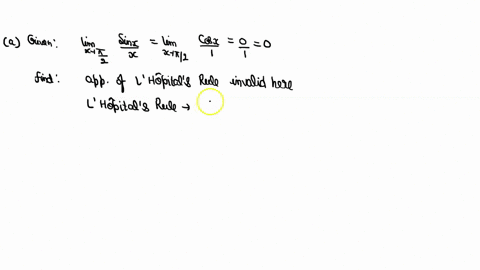 (a) Given: lim x→π/2 Sinx/x = lim x→π/2 Cosx/1 = 0/1 = 0
Find: app. of L'Hôpital's Rule invalid here
L'Hôpital's Rule →